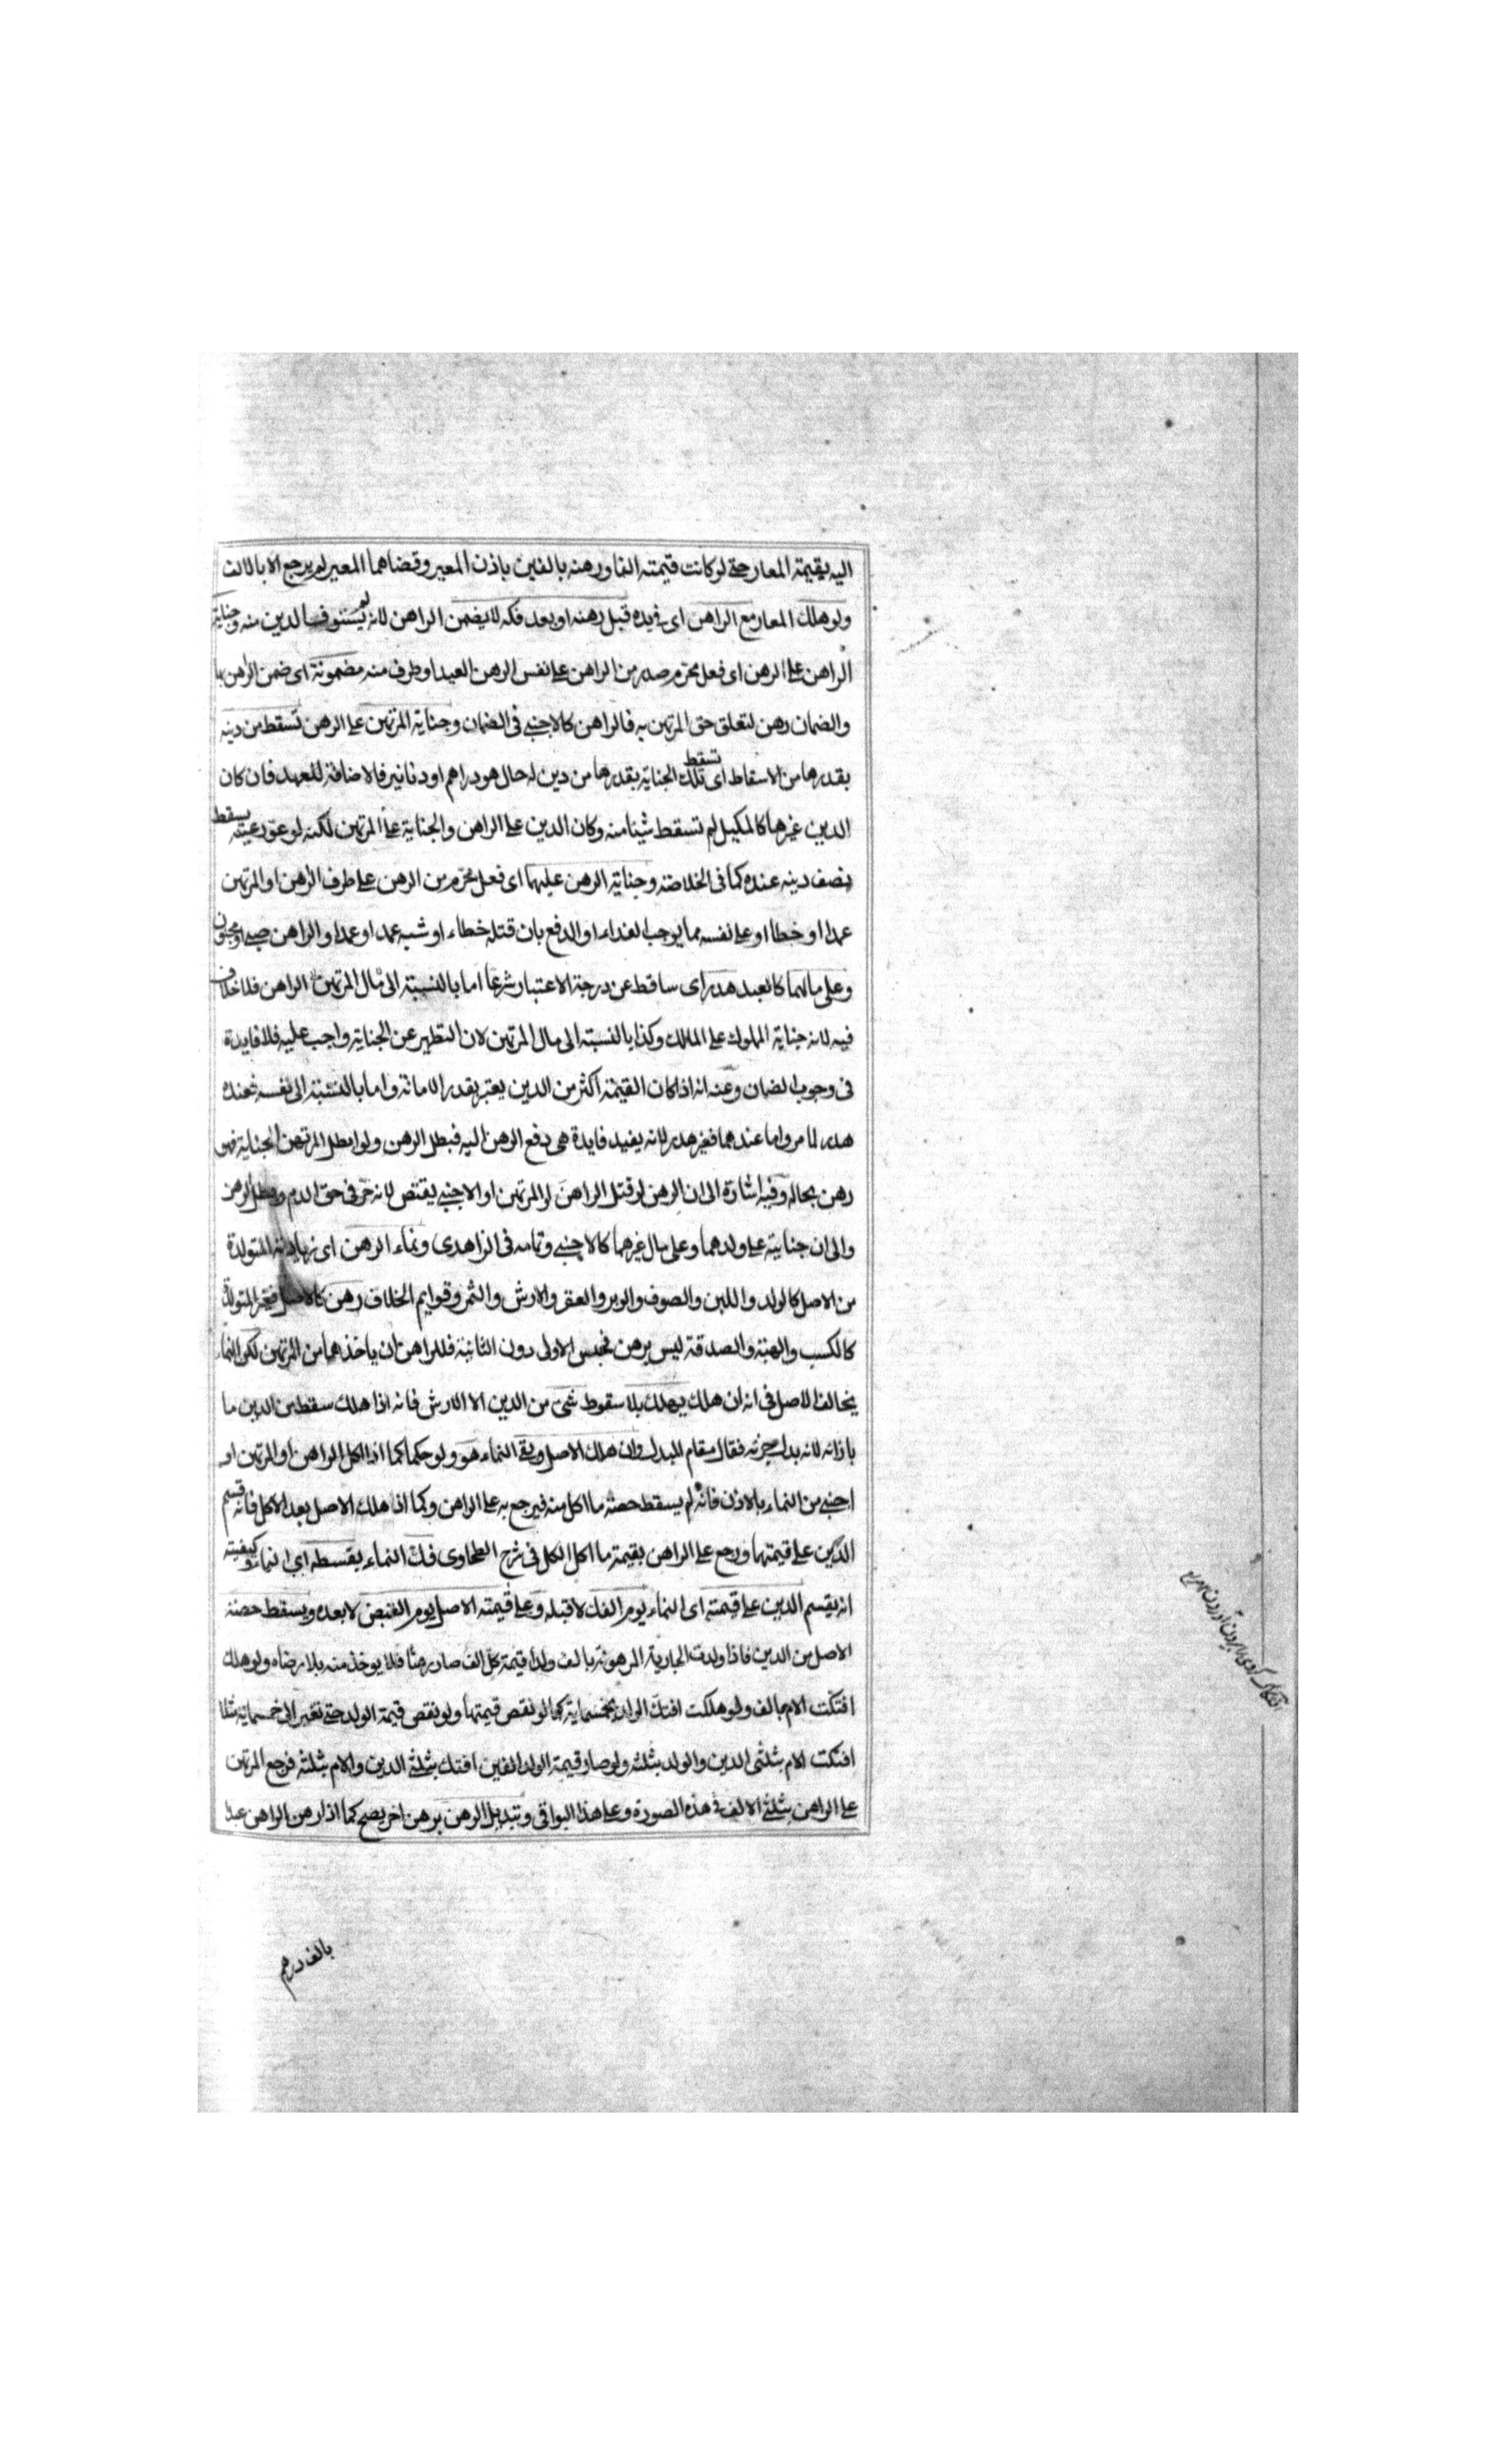 اليه بقيمة المعار حتى لو كانت قيمته الفا ورهنه بالفين باذن المعير وقضاهما المعير لم يرجع الا بالالف
ولو هلك المعار مع الراهن اى فى يده قبل رهنه او بعد فكه لا يضمن الراهن لانه لم يستوف الدين منه وجناية
الراهن على الرهن اى فعل محرم صدر من الراهن على نفس الرهن العبد او طرف منه مضمونة اى ضمن الراهن بها
والضمان رهن لتعلق حق المرتهن به فالراهن كالاجنبى فى الضمان وجناية المرتهن على الرهن تسقط من دينه
بقدرها من الاسقاط اى تسقط تلك الجناية بقدرها من دين له حال هو دراهم او دنانير فالاضافة للعهد فان كان
الدين غيرها كالمكيل لم تسقط شيئا منه وكان الدين على الراهن والجناية على المرتهن لكنه لو عور عينه يسقط
نصف دينه عنده كما فى الخلاصة وجناية الرهن عليهما اى فعل محرم من الرهن على طرف الراهن او المرتهن
عمدا او خطا او على نفسه مما يوجب الفداء او الدفع بان قتله خطاء او شبه عمد او عمدا والراهن صبى او مجنون
وعلى مالهما كالعبد هدر اى ساقط عن درجة الاعتبار شرعا اما بالنسبة الى مال الراهن فلا خلاف
فيه لانه جناية المملوك على المالك وكذا بالنسبة الى مال المرتهن لان التطهير عن الجناية واجب عليه فلا فايدة
فى وجوب الضمان وعنه انه اذا كان القيمة اكثر من الدين يعتبر بقدر الامانة واما بالنسبة الى نفسه فعنده
هدر لما مر واما عندهما فغير هدر لانه يفيد فايدة هى دفع الرهن اليه فبطل الرهن ولو ابطل المرتهن الجناية فهو
رهن بحاله وفيه اشارة الى ان الرهن لو قتل الراهن او المرتهن او الاجنبى يقتص لانه حر فى حق الدم وبطل الرهن
والى ان جنايته على ولدهما وعلى مال غيرهما كالاجنبى وتمامه فى الزاهدى ونماء الرهن اى زيادته المتولدة
من الاصل كالولد واللبن والصوف والوبر والعقر والارش والثمر وقوايم الخلاف رهن كالاصل فغير المتولدة
كالكسب والهبة والصدقة ليس برهن فحبس الاولى دون الثانية فللراهن ان ياخذها من المرتهن لكن النماء
يخالف الاصل فى انه ان هلك يهلك بلا سقوط شئ من الدين الا الارش فانه اذا هلك سقط من الدين ما
بازائه لانه بدل جزئه فقام مقام المبدل وان هلك الاصل وبقى النماء هو ولو حكما كما اذا اكل الراهن او المرتهن او
اجنبى من النماء بالاذن فانه لم يسقط حصة ما اكل منه فيرجع به على الراهن وكما اذا هلك الاصل بعد الاكل فانه قسم
الدين على قيمتهما ورجع على الراهن بقيمة ما اكل الكل فى شرح الطحاوى فك النماء بقسطه اى النماء وكيفيته
انه يقسم الدين على قيمته اى النماء يوم الفك لا قبله وعلى قيمة الاصل يوم القبض لا بعده ويسقط حصة
الاصل من الدين فاذا ولدت الجارية المرهونة بالف ولدا قيمة كل الف صار رهنا فلا يوخذ منه بلا رضاه ولو هلك
افتكت الام بالف ولو هلكت افتك الولد بخمسماية كما لو نقص قيمتها ولو نقص قيمة الولد حتى تغير الى خمسماية مثلا
افتكت الام بثلثى الدين والولد بثلثه ولو صار قيمة الولد الفين افتك بثلثى الدين والام بثلثه فرجع المرتهن
على الراهن بثلثى الالف فى هذه الصورة وعلى هذا البواقى وتبديل الرهن برهن اخر يصح كما اذا رهن الراهن عبدا
بالف درهم